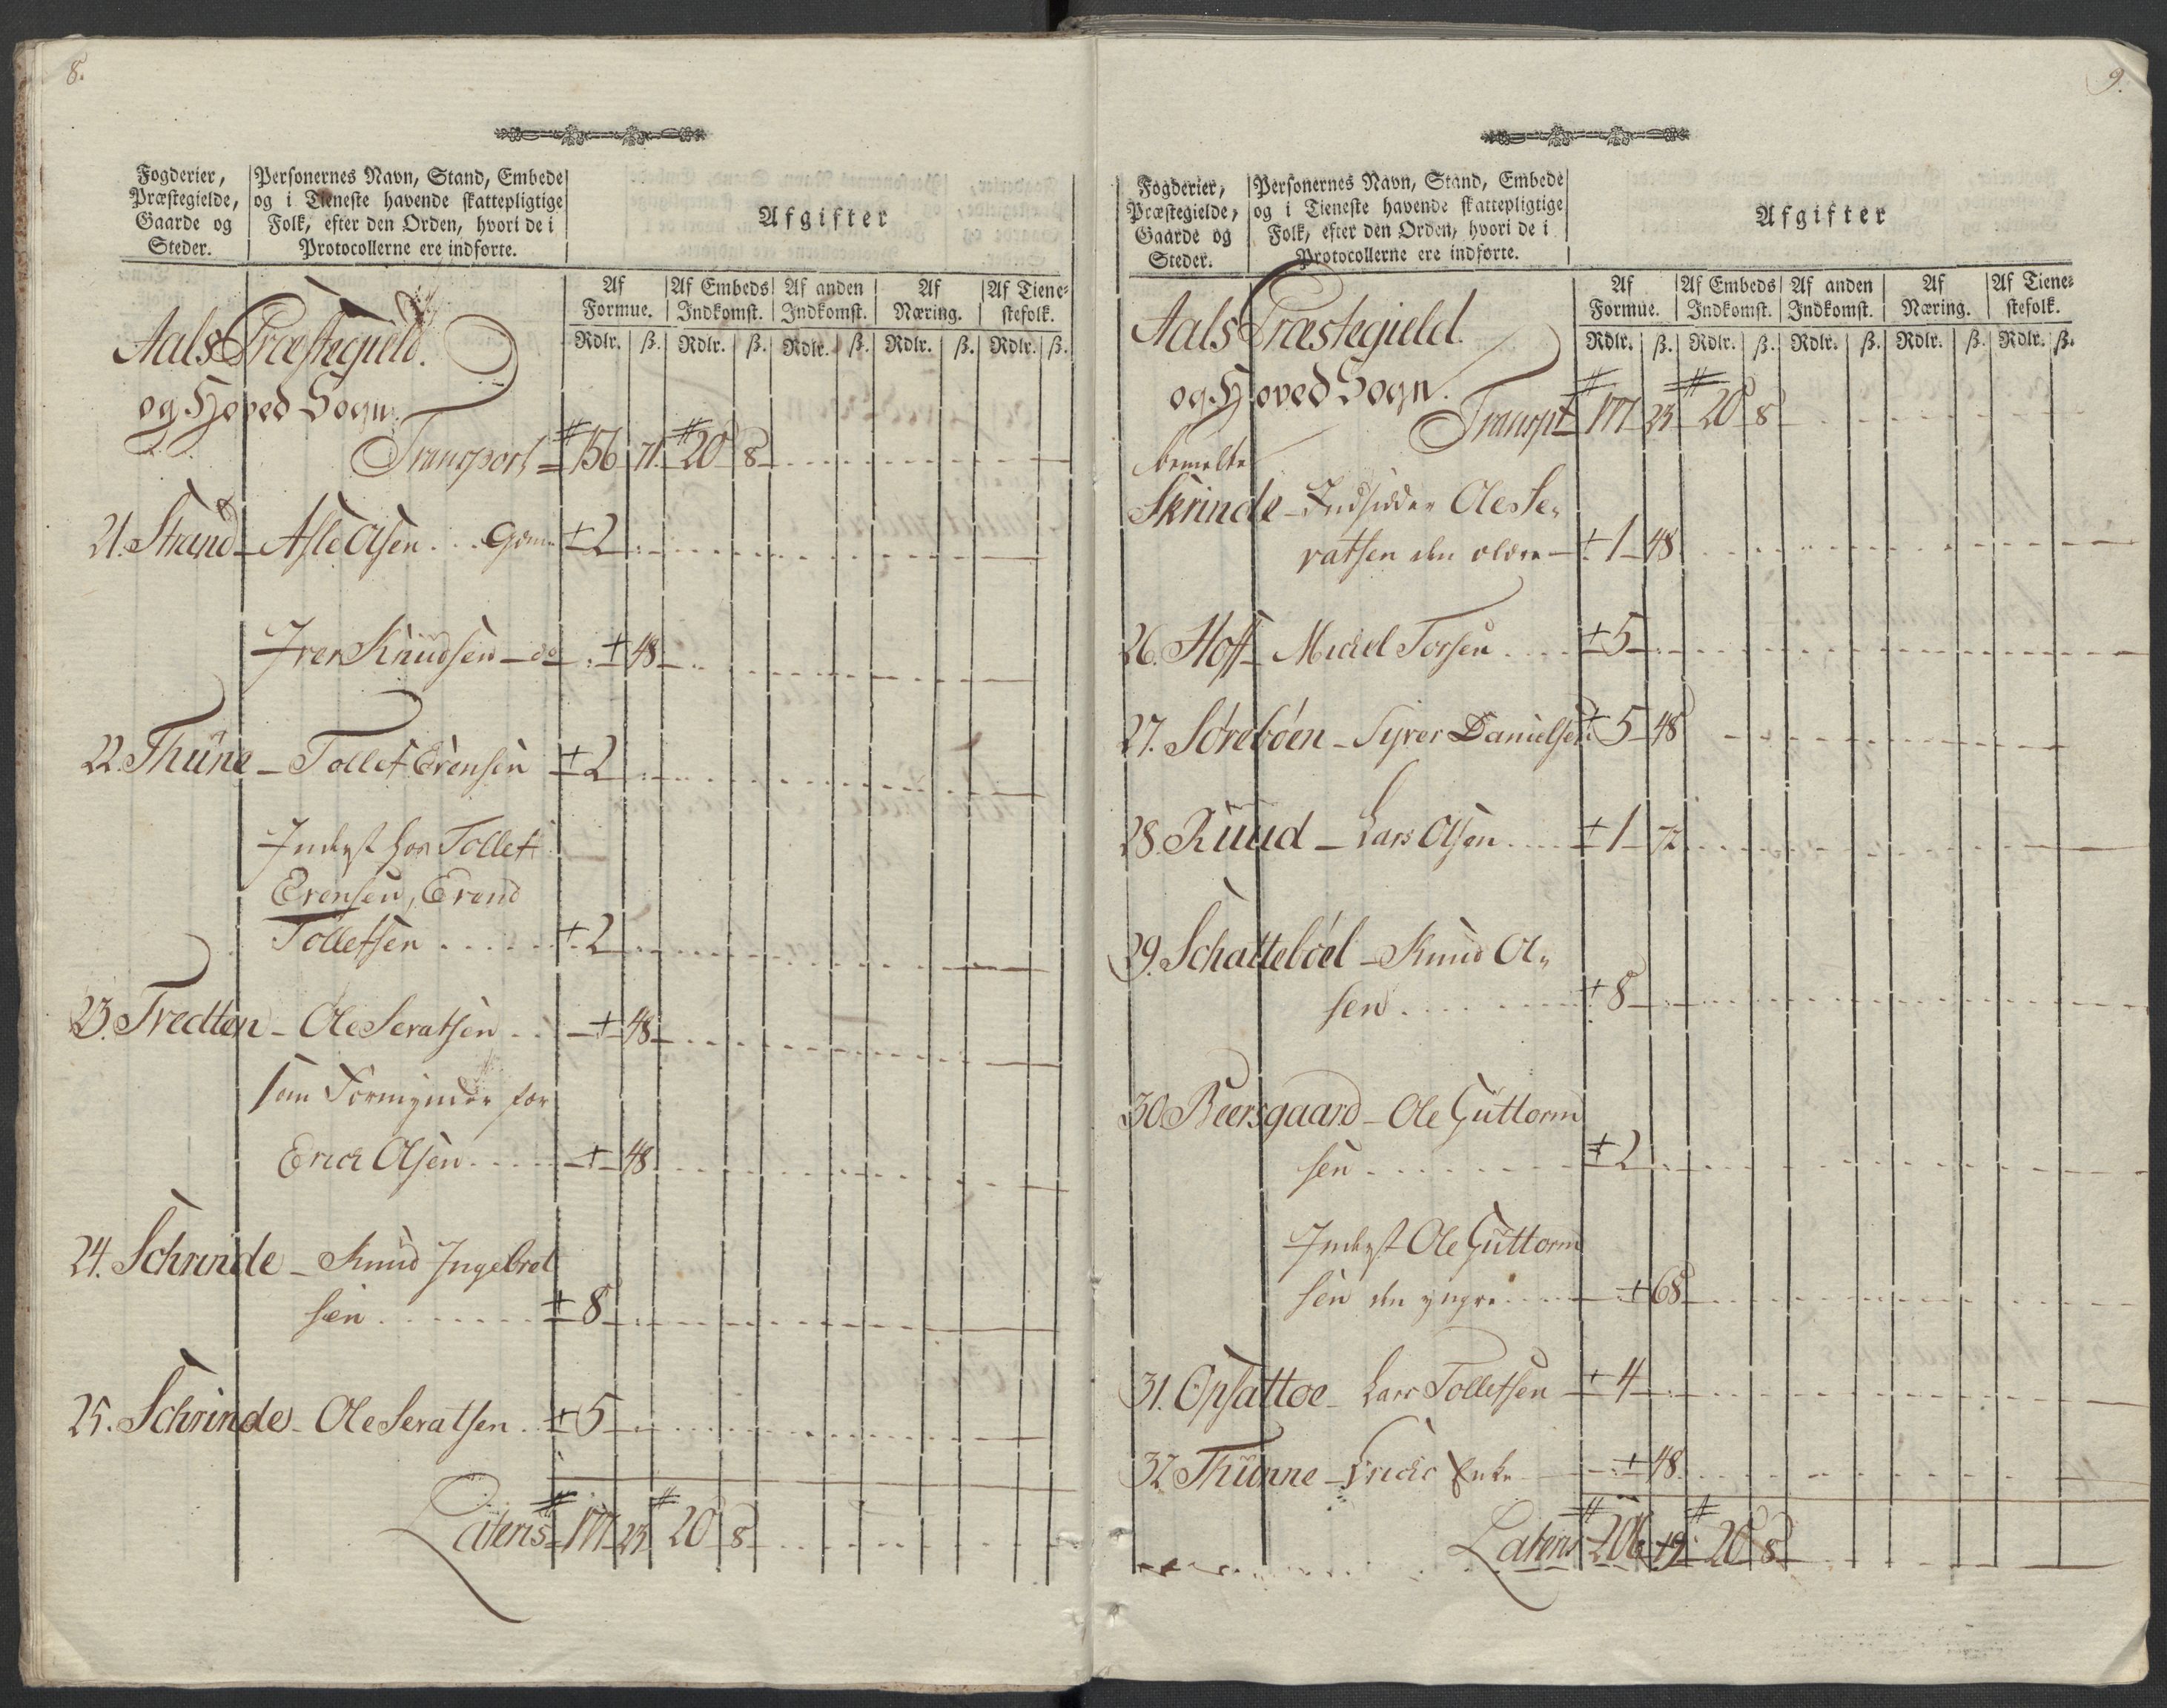 8.
Fogderier,
Præstegielde,
Gaarde og
Steder.
Personernes Navn, Stand, Embede
og i Tieneste havende skattepligtige
Folk, efter den Orden, hvori de i
Protocollerne ere indførte.
Afgifter
Af Formue. Af Embeds Indkomst. Af anden Indkomst. Af Næring. Af Tienestefolk.
Rdlr. ß. Rdlr. ß. Rdlr. ß. Rdlr. ß. Rdlr. ß.
Aals Præstegield.
og Hoved Sogn.
Transport 156 71 20 8
21. Strand Asle Olsen 2
Iver Knudsen do 48
22. Thune Tollef Evensen 2
Inderst hos Tollef
Erensen, Erend
Tollefsen 2
23. Tredten Ole Seratsen 48
som Formynder for
Erich Olsen 48
24. Schrinde Knud Ingebret
sen 8
25. Schrinde Ole Seratsen 5
Lateris 177 23 20 8
9.
Fogderier,
Præstegielde,
Gaarde og
Steder.
Personernes Navn, Stand, Embede
og i Tieneste havende skattepligtige
Folk, efter den Orden, hvori de i
Protocollerne ere indførte.
Afgifter
Af Formue. Af Embeds Indkomst. Af anden Indkomst. Af Næring. Af Tienestefolk.
Rdlr. ß. Rdlr. ß. Rdlr. ß. Rdlr. ß. Rdlr. ß.
Aals Præstegield.
og Hoved Sogn.
Transpt 177 23 20 8
bemelte
Skrinde Indsidder Ole Se,,
ratsen den eldre 1 48
26. Hoff Mickel Torsen 5
27. Søreböen Syver Danielsen 5 48
28. Ruud Lars Olsen 1 72
29. Schatteböel Knud Ol,,
sen 8
30. Beersgaard Ole Guttorm
sen 2
Inderst Ole Guttorm
sen den yngre 68
31. Opsattoe Lars Tollefsen 4
32. Thunne Erichs Enke 48
Lateris 206 19 20 8